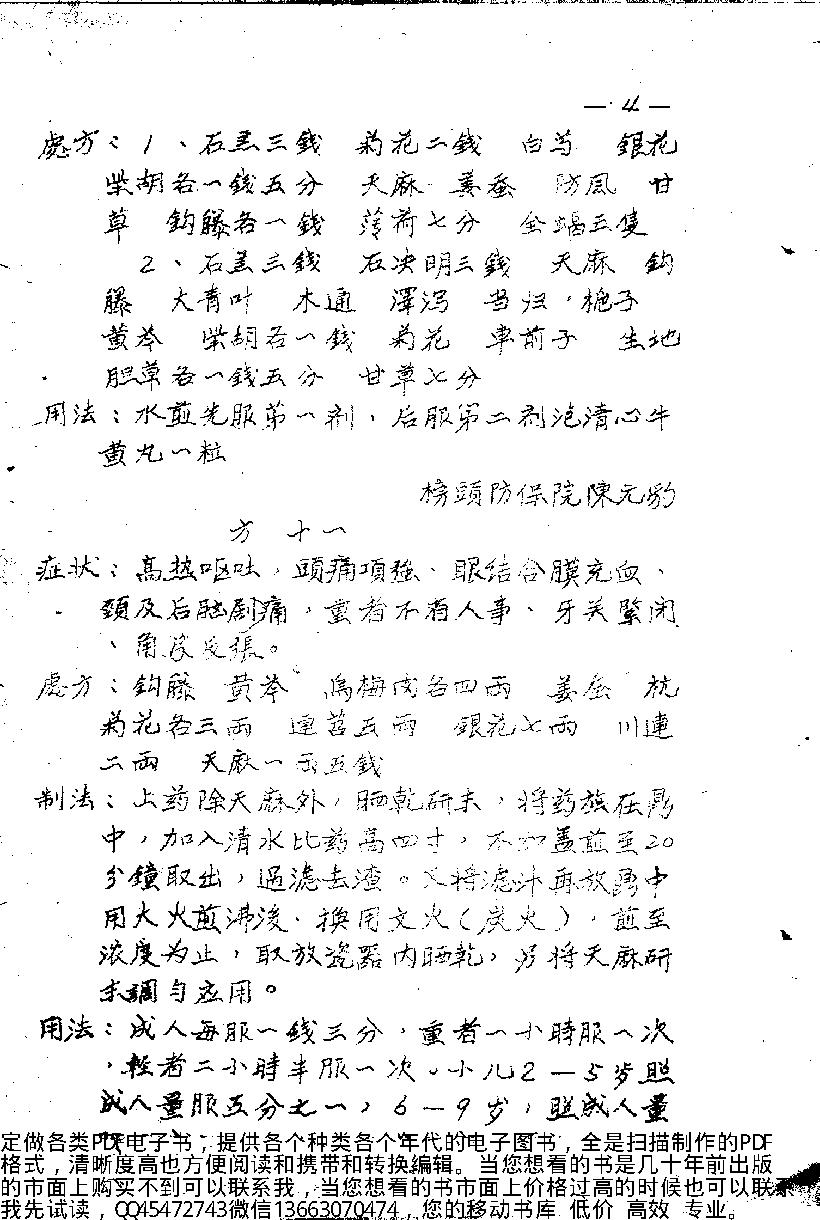 — 4 —
處方：1、石羔三錢 菊花二錢 白芍 銀花
柴胡各一錢五分 天麻 姜蚕 防風 甘
草 鈎藤各一錢 薄荷七分 全蝎五隻
2、石羔三錢 石决明三錢 天麻 鈎
藤 大青叶 木通 澤泻 当归，栀子
黄芩 柴胡各一錢 菊花 車前子 生地
胆草各一錢五分 甘草七分
用法：水煎先服第一剂，后服第二剂泡清心牛
黄丸一粒
榜頭防保院陳元豹
方 十一
症状：高热呕吐，頭痛項强、眼结合膜充血、
頚及后脑剧痛，重者不省人事、牙关緊闭
、角反張。
處方：鈎藤 黄芩 烏梅肉各四兩 姜虫 杭
菊花各三兩 連苕五兩 銀花七兩 川連
二兩 天麻一兩五錢
制法：上药除天麻外，晒乾研末，将药放在鼎
中，加入清水比药高四寸，不加盖煎至20
分鐘取出，過滤去渣。又将滤汁再放鼎中
用大火煎沸後，换用文火（炭火），煎至
浓度为止，取放瓷器内晒乾，另将天麻研
末調匀应用。
用法：成人每服一錢三分，重者一小時服一次
，輕者二小時半服一次。小儿2—5岁照
成人量服五分之一，6—9岁，照成人量
定做各类PDF电子书，提供各个种类各个年代的电子图书，全是扫描制作的PDF
格式，清晰度高也方便阅读和携带和转换编辑。当您想看的书是几十年前出版
的市面上购买不到可以联系我，当您想看的书市面上价格过高的时候也可以联系
我先试读，QQ45472743微信13663070474，您的移动书库 低价 高效 专业。